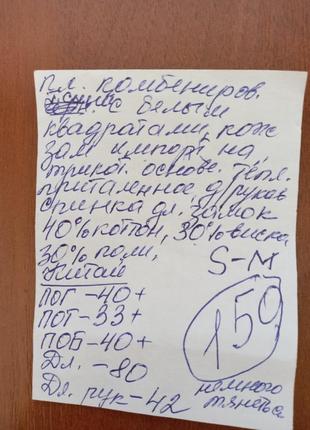 пл. комбениров.
синее с белым
квадратами, кож
зам импорт на
трикот. основе. тепл.
приталенное, д/рукав
спинка дл. замок
40% коттон, 30% виска
30% поли,
Китай
S-M
ПОГ -40+
ПОТ -33+
ПОБ -40+
Дл. -80
Дл. рук -42
159
немного
тянется